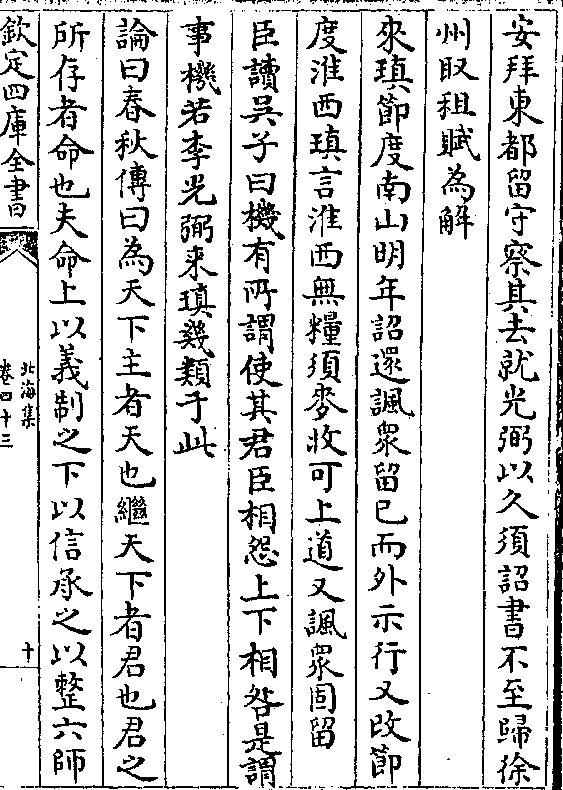 安拜東都留守察其去就光弼以久須詔書不至歸徐
州収租賦為解
來瑱節度南山明年詔還諷衆留已而外示行又改節
度淮西瑱言淮西無糧須麥收可上道又諷衆固留
臣讀吳子曰機有所謂使其君臣相怨上下相咎是謂
事機若李光弼来瑱幾類于此
論曰春秋傳曰為天下主者天也繼天下者君也君之
所存者命也夫命上以義制之下以信承之以整六師
欽定四庫全書
北海集
卷四十三
十